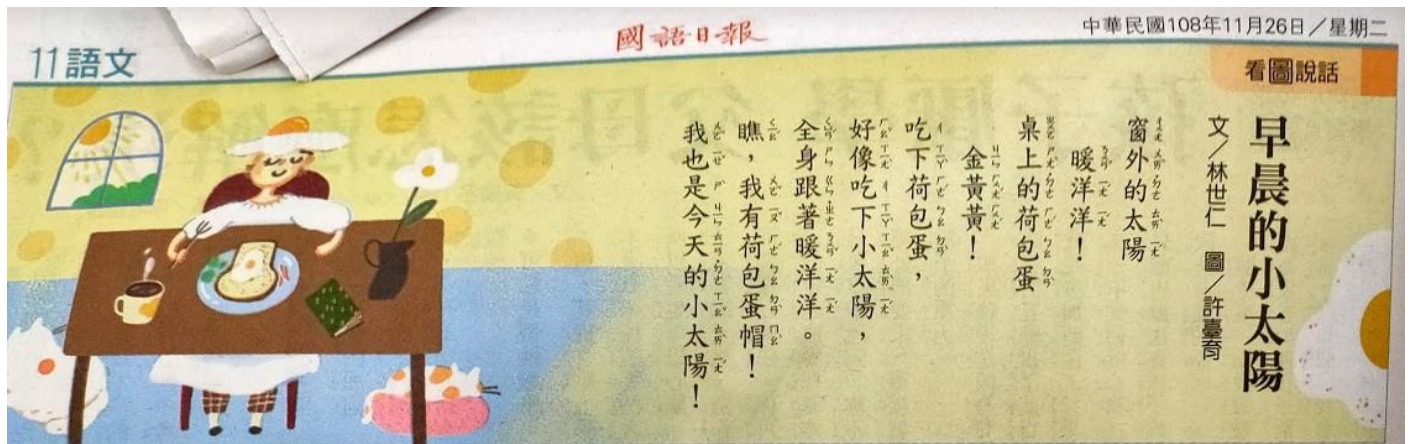 11語文
國語日報
中華民國108年11月26日／星期二
看圖說話
早晨的小太陽
文／林世仁 圖／許臺育
窗外的太陽
暖洋洋！
桌上的荷包蛋
金黃黃！
吃下荷包蛋，
好像吃下小太陽，
全身跟著暖洋洋。
瞧，我有荷包蛋帽！
我也是今天的小太陽！